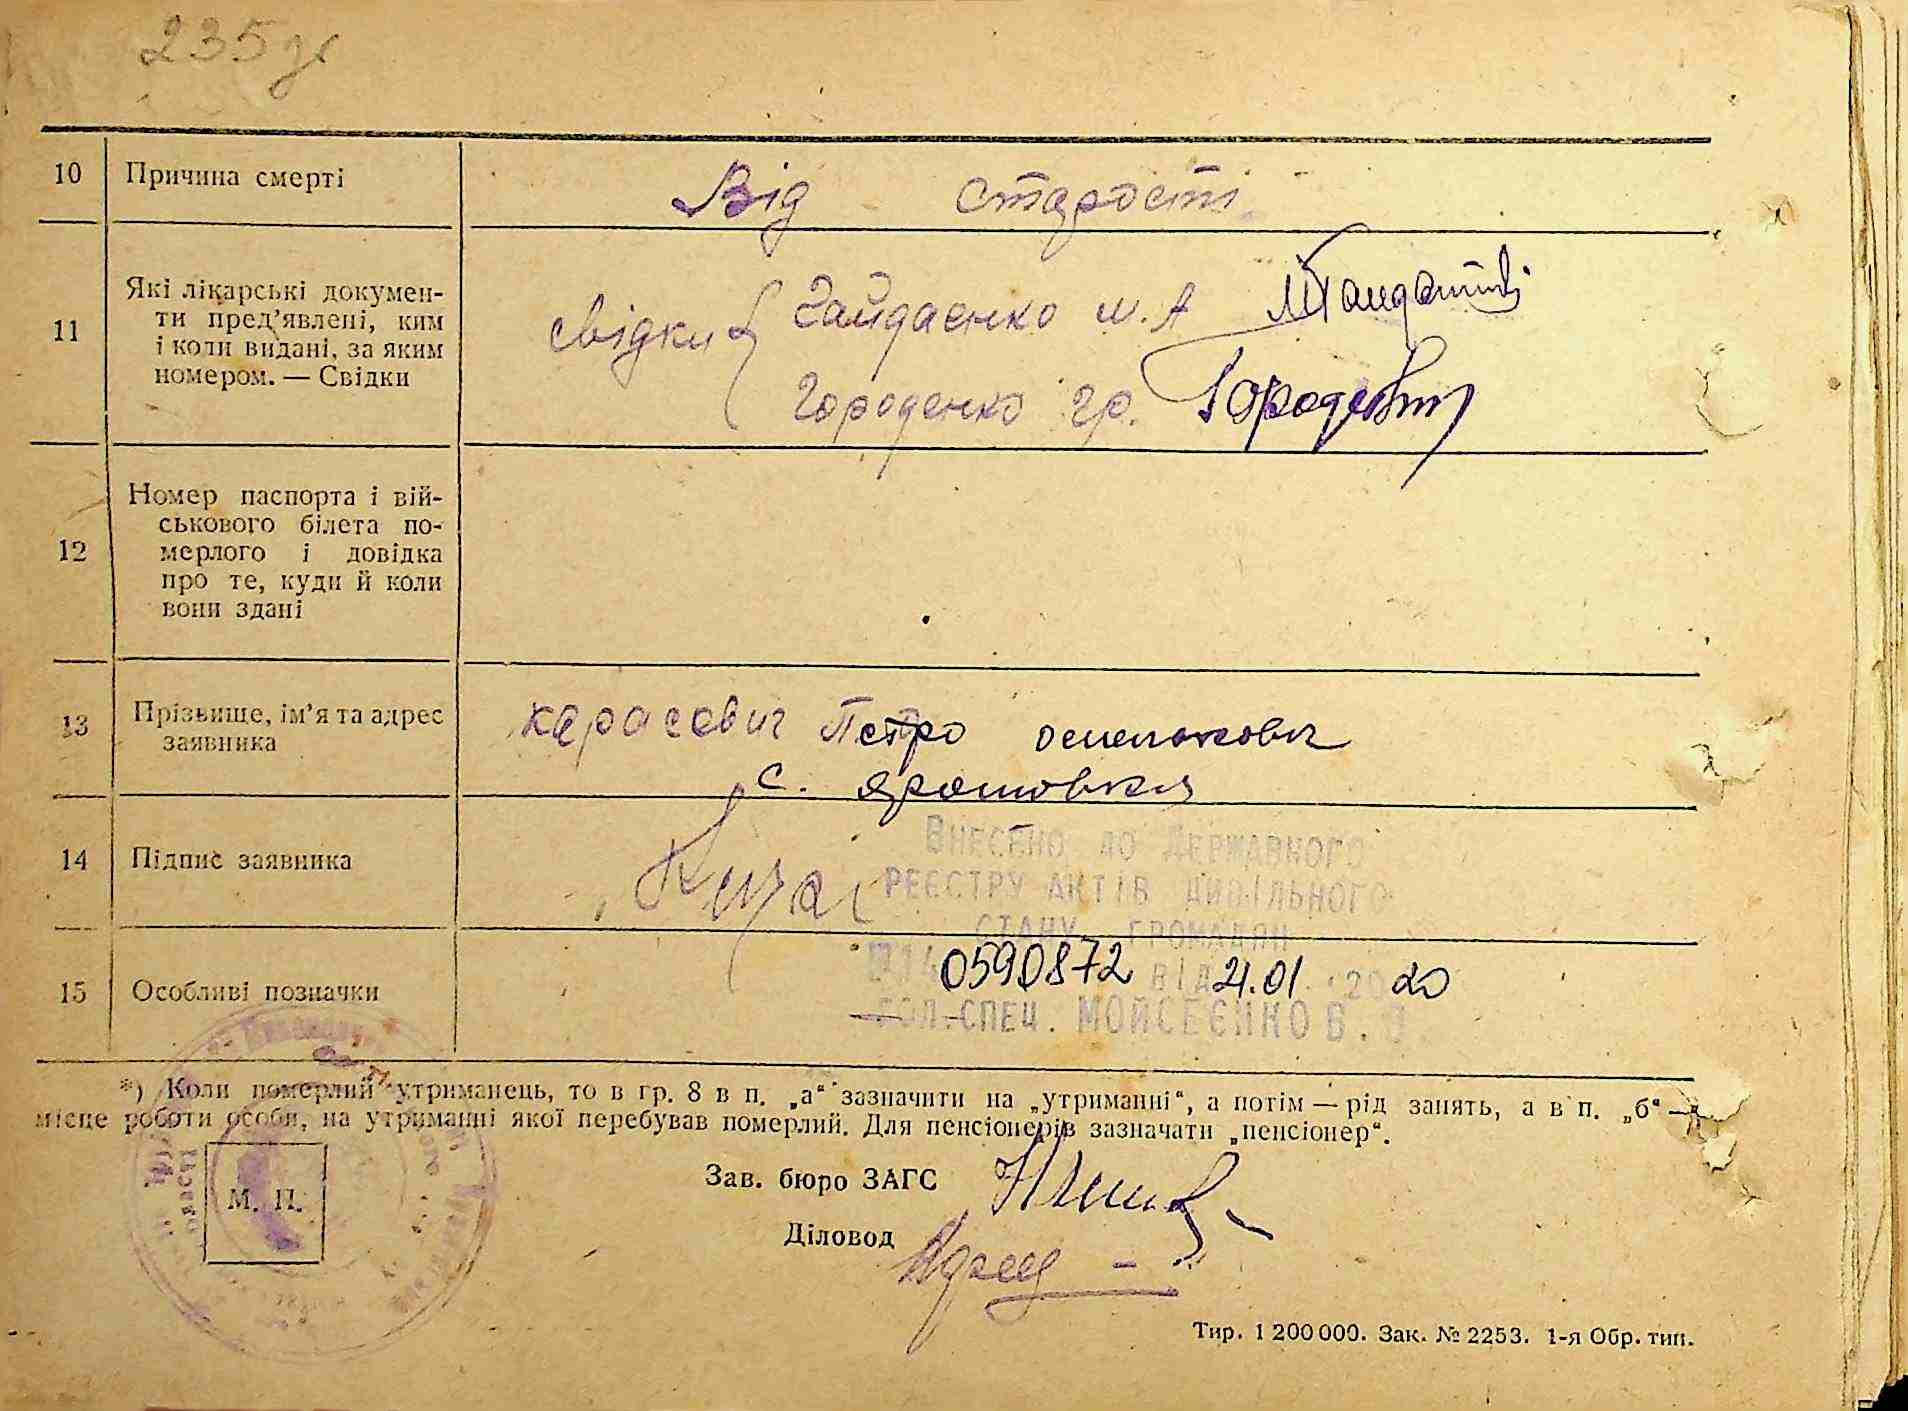 235
10 Причина смерті Від старості
11 Які лікарські докумен-
ти пред'явлені, ким
і коли видані, за яким
номером. — Свідки
свідки { Гайдаєнко М. А
Городенко гр.
12 Номер паспорта і вій-
ськового білета по-
мерлого і довідка
про те, куди й коли
вони здані
13 Прізвище, ім'я та адрес
заявника
карасевич Петро
с.
14 Підпис заявника
Внесено до Державного
реєстру актів цивільного
стану громадян
0590872 від 21.01.2020
спец. Мойсеєнко В.
15 Особливі позначки
*) Коли померлий утриманець, то в гр. 8 в п. „а“ зазначити на „утриманні“, а потім — рід занять, а в п. „б“ —
місце роботи особи, на утриманні якої перебував померлий. Для пенсіонерів зазначати „пенсіонер“.
М. П.
Зав. бюро ЗАГС
Діловод
Тир. 1 200 000. Зак. № 2253. 1-я Обр. тип.